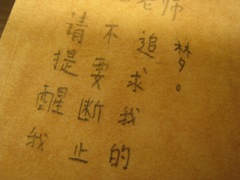 老师
请提醒我
不要断止
追求我的
梦。